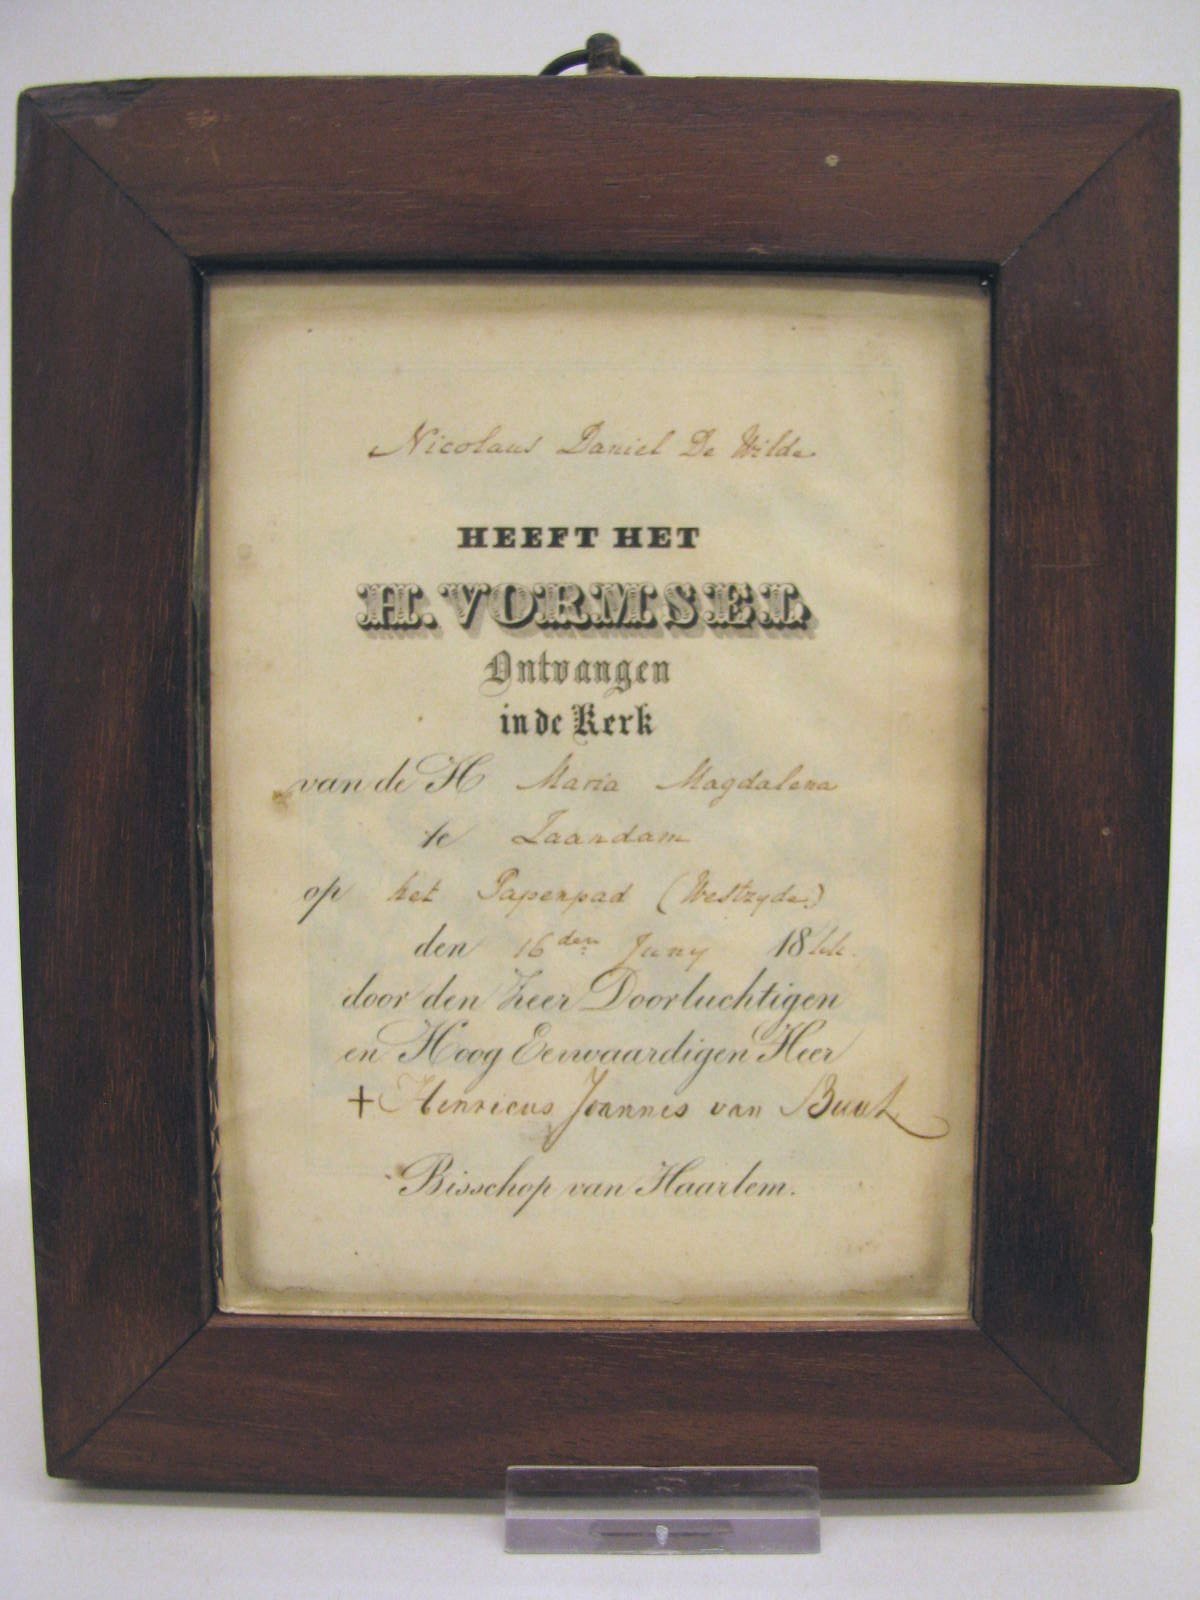 Nicolaus Daniel De Wilde
HEEFT HET
H. VORMSEL
Ontvangen
in de Kerk
van de H Maria Magdalena
te Zaandam
op het Papenpad (Westzyde)
den 16den Juny 18
door den Zeer Doorluchtigen
en Hoog Eerwaardigen Heer
+ Henricus Joannes van
Bisschop van Haarlem.